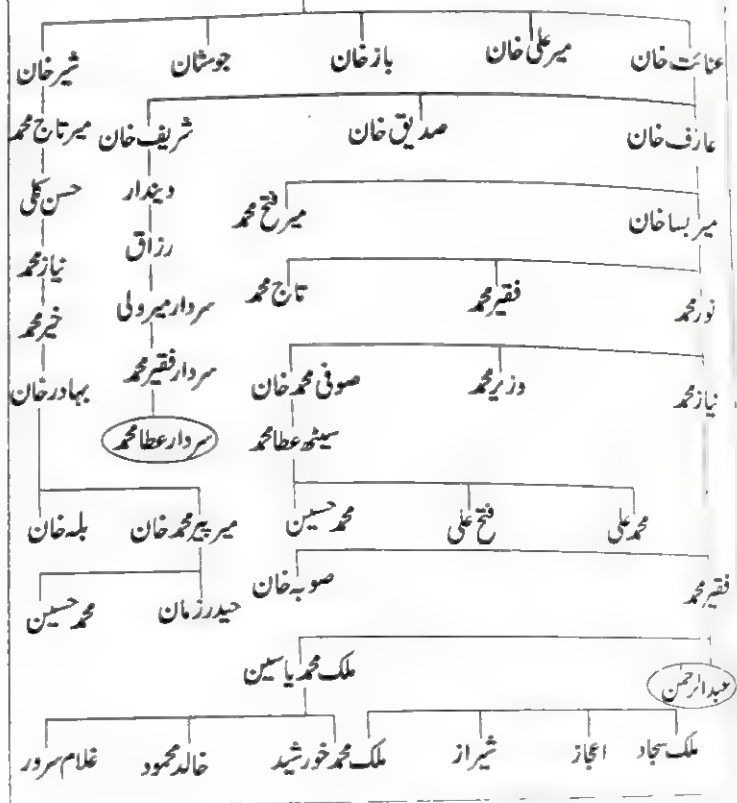 عنائت خان میر علی خان باز خان جوستان شیر خان
عارف خان صدیق خان شریف خان میر تاج محمد
میر بسا خان میر فتح محمد دیندار حسن کلی
نور محمد فقیر محمد تاج محمد رزاق نیاز محمد
سردار میر ولی خیر محمد
نیاز محمد وزیر محمد صوفی محمد خان سردار فقیر محمد بہادر خان
سیٹھ عطا محمد سردار عطا محمد
محمد علی فتح علی محمد حسین میر پیر محمد خان بلہ خان
فقیر محمد صوبہ خان حیدر زمان محمد حسین
عبدالرحمن ملک محمد یاسین
ملک سجاد اعجاز شیراز ملک محمد خورشید خالد محمود غلام سرور